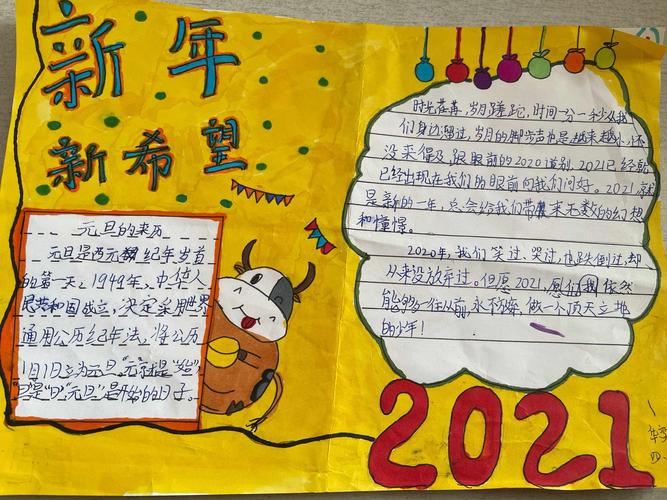 新年
新希望
元旦的来历
元旦是西元纪年岁首
的第一天，1949年，中华人
民共和国成立，决定采用世界
通用公历纪年法，将公历
1月1日立为元旦。"元"就是"始"
"旦"是"日"，"元旦"是开始的日子。
时光荏苒，岁月蹉跎，时间一分一秒从我
们身边溜过，岁月的脚步声也是越来越小，还
没来得及跟眼前的2020道别，2021已经
已经出现在我们的眼前向我们问好。2021，
是新的一年，总会给我们带来无数的幻想
和憧憬。
2020年，我们笑过、哭过，也跌倒过，却
从来没放弃过。但愿2021，愿们我依然
能够一往从前，永不，做一个顶天立地
的少年！
2021